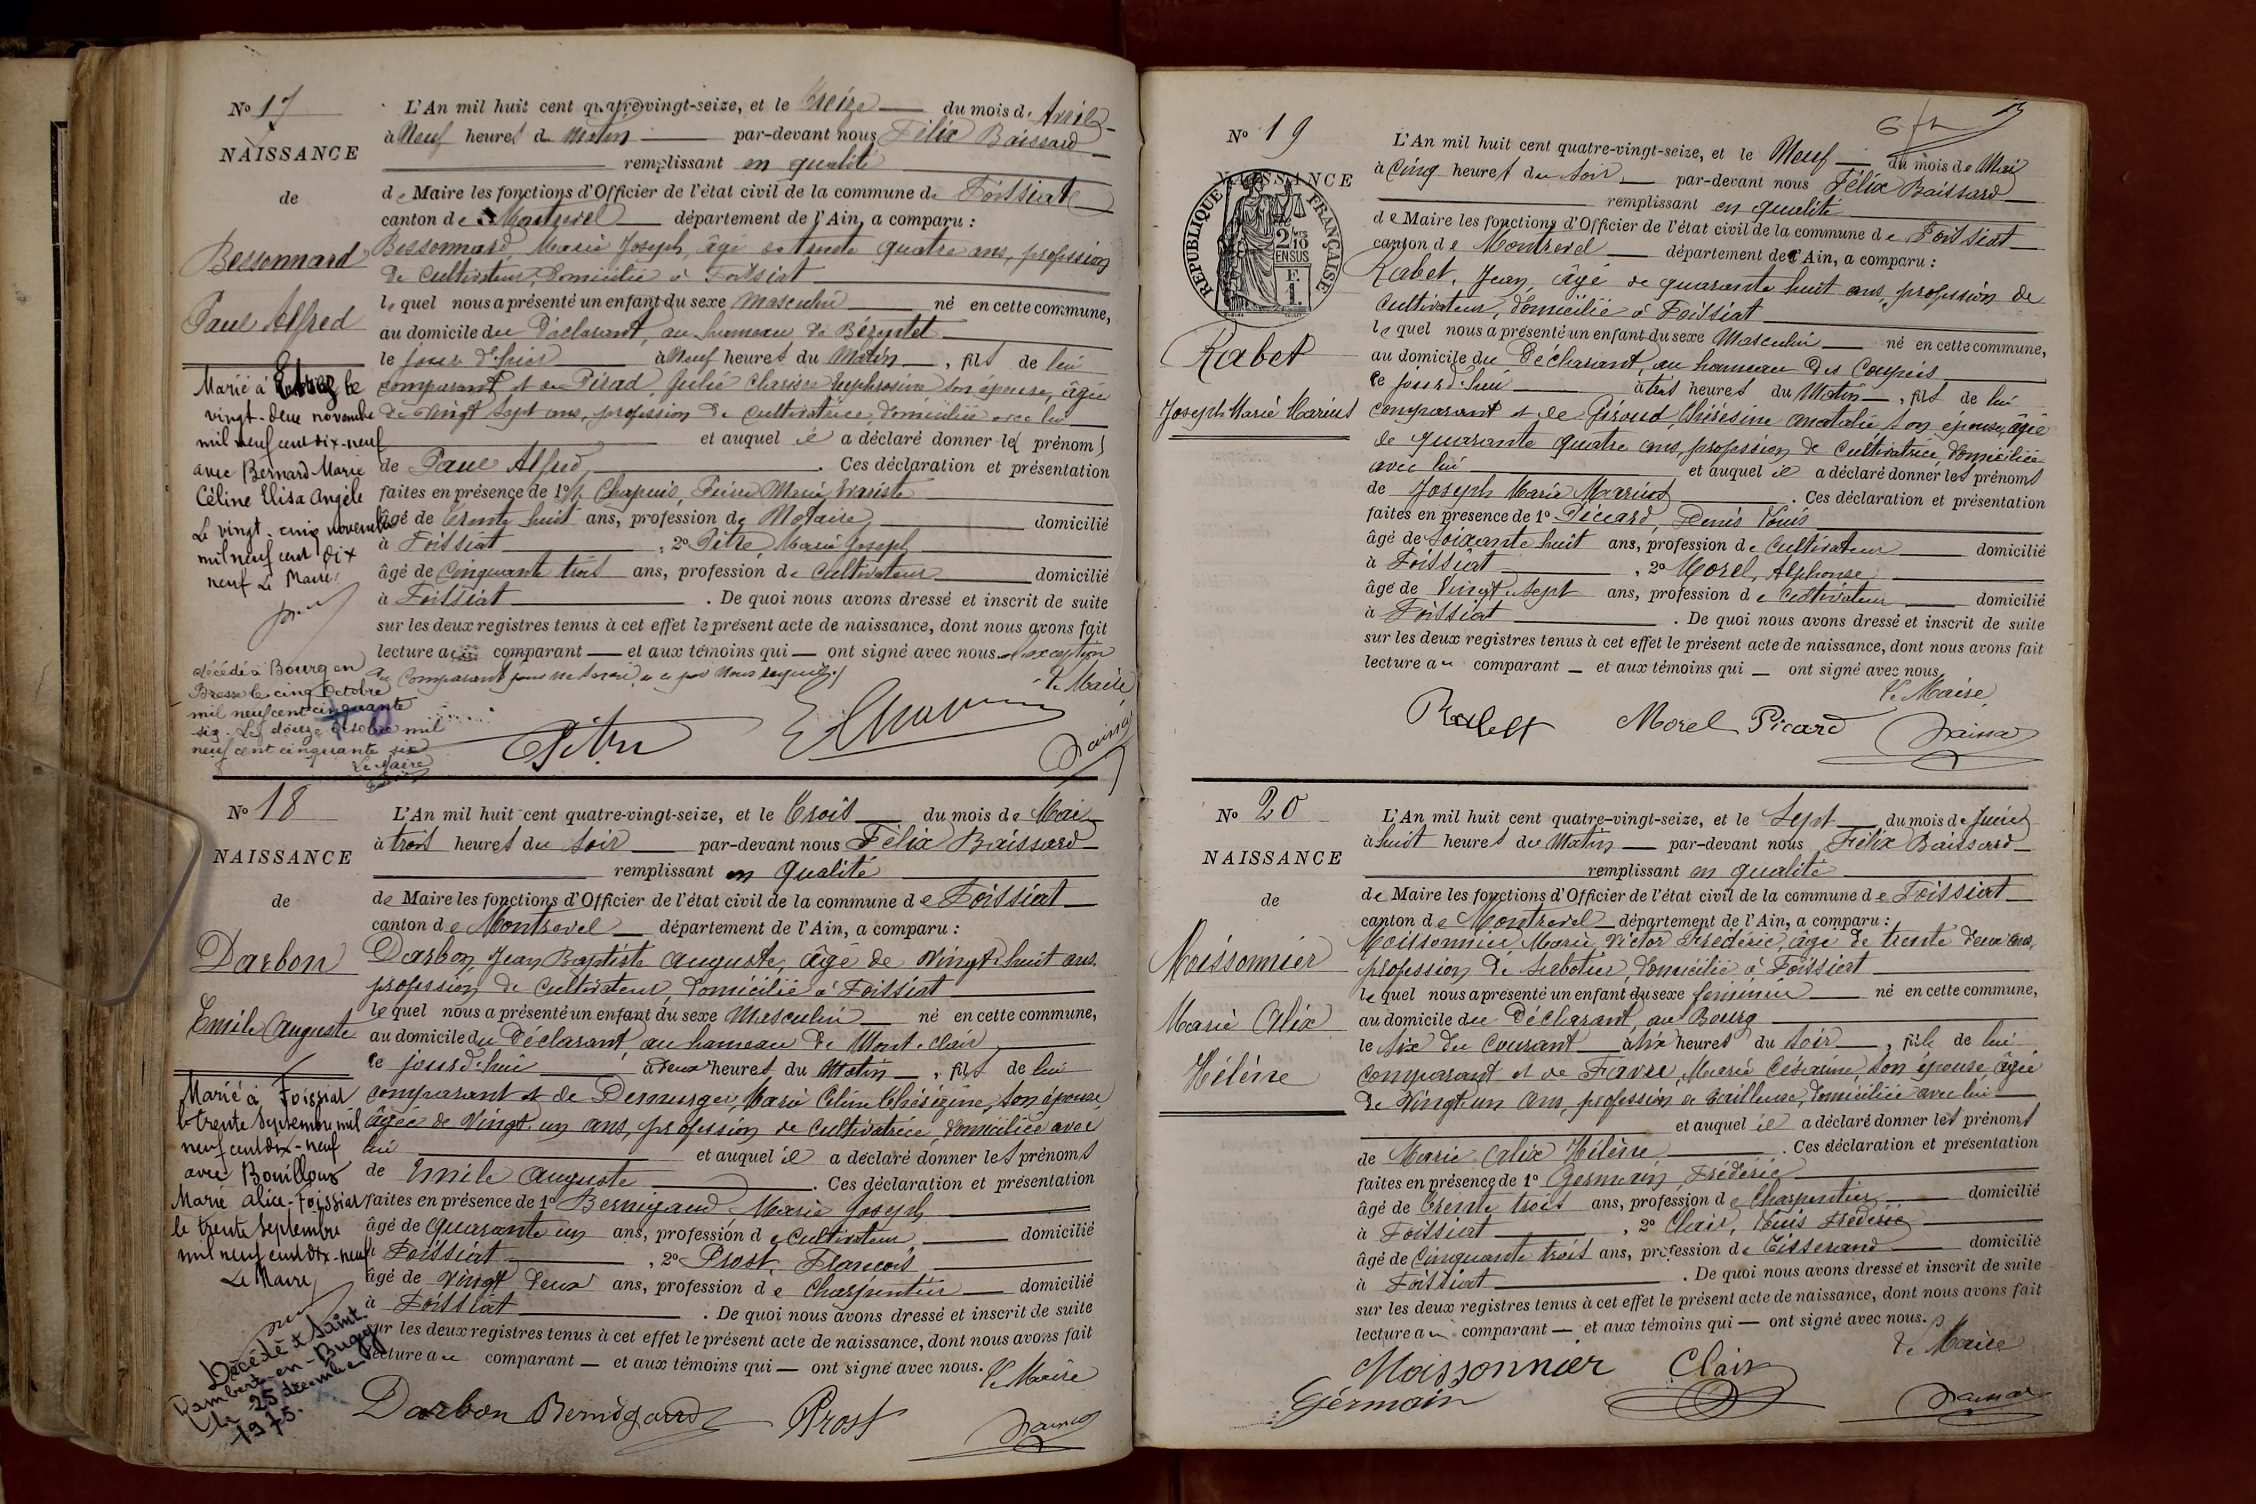 No 17
NAISSANCE
de
Bessonnard
Paul Alfred
Marié à le
vingt-deux novembre
mil neuf cent dix-neuf
avec Bernard Marie
Céline Elisa Angèle
Le vingt-cinq novembre
mil neuf cent dix
neuf Le Maire
décédé à Bourg en
Bresse le cinq Octobre
mil neuf cent cinquante
six. Le douze Octobre mil
neuf cent cinquante six
Le Maire
L'An mil huit cent quatre-vingt-seize, et le treize du mois d'Avril
à Neuf heures du Matin par-devant nous Félix Baissard
remplissant en qualité
de Maire les fonctions d'Officier de l'état civil de la commune de Foissiat
canton de Montrevel département de l'Ain, a comparu :
Bessonnard Marie Joseph, âgé de trente quatre ans, profession
de cultivateur, domicilié à Foissiat
lequel nous a présenté un enfant du sexe masculin né en cette commune,
au domicile du Déclarant, au hameau de
le jour d'hier à Neuf heures du Matin, fils de lui
comparant et de Julie Clarisse son épouse, âgée
de vingt sept ans, profession de cultivatrice, domiciliée avec lui
et auquel il a déclaré donner les prénoms
de Paul Alfred. Ces déclaration et présentation
faites en présence de 1o Chapuis, Marie
âgé de trente huit ans, profession de Notaire domicilié
à Foissiat, 2o Pitre, Marie Joseph
âgé de Cinquante trois ans, profession de cultivateur domicilié
à Foissiat. De quoi nous avons dressé et inscrit de suite
sur les deux registres tenus à cet effet le présent acte de naissance, dont nous avons fait
lecture au comparant et aux témoins qui ont signé avec nous à l'exception
du Comparant pour ne savoir de ce par Nous requis
Le Maire
Pitre
No 18
NAISSANCE
de
Darbon
Emile Auguste
Marié à Foissiat
le trente Septembre mil
neuf cent dix-neuf
avec Bouilloux
Marie Alice. Foissiat
le trente Septembre
mil neuf cent dix-neuf
Le Maire
Décédé à Saint
Rambert-en-Bugey
le 25 décembre
1975.
L'An mil huit cent quatre-vingt-seize, et le Trois du mois de Mai
à trois heures du Soir par-devant nous Félix Baissard
remplissant en qualité
de Maire les fonctions d'Officier de l'état civil de la commune de Foissiat
canton de Montrevel département de l'Ain, a comparu :
Darbon, Jean Baptiste Auguste, âgé de Vingt huit ans,
profession de Cultivateur, domicilié à Foissiat
lequel nous a présenté un enfant du sexe Masculin né en cette commune,
au domicile du Déclarant, au hameau de Mont-clair
ce jourd'hui à deux heures du Matin, fils de lui
comparant et de Demurger, Marie Celine son épouse,
âgée de Vingt un ans, profession de Cultivatrice, domiciliée avec
lui et auquel il a déclaré donner les prénoms
de Emile Auguste. Ces déclaration et présentation
faites en présence de 1o Bernigaud Marie Joseph
âgé de Quarante un ans, profession de Cultivateur domicilié
à Foissiat, 2o Prost, François
âgé de vingt deux ans, profession de Charpentier domicilié
à Foissiat. De quoi nous avons dressé et inscrit de suite
sur les deux registres tenus à cet effet le présent acte de naissance, dont nous avons fait
lecture au comparant et aux témoins qui ont signé avec nous.
Le Maire
Darbon Bernigaud Prost
13
No 19
NAISSANCE
RÉPUBLIQUE FRANÇAISE
2/10
EN SUS
F.
1.
Rabet
Joseph Marie Marius
L'An mil huit cent quatre-vingt-seize, et le Neuf du mois de Mai
à Cinq heures du Soir par-devant nous Félix Baissard
remplissant en qualité
de Maire les fonctions d'Officier de l'état civil de la commune de Foissiat
canton de Montrevel département de l'Ain, a comparu :
Rabet, Jean, âgé de quarante huit ans, profession de
Cultivateur, domicilié à Foissiat
lequel nous a présenté un enfant du sexe Masculin né en cette commune,
au domicile du Déclarant, au hameau des
ce jourd'hui à trois heures du Matin, fils de lui
comparant et de Giroud, son épouse, âgée
de quarante quatre ans, profession de Cultivatrice, domiciliée
avec lui et auquel il a déclaré donner les prénoms
de Joseph Marie Marius. Ces déclaration et présentation
faites en présence de 1o Piccard, Denis Louis
âgé de Soixante huit ans, profession de Cultivateur domicilié
à Foissiat, 2o Morel, Alphonse
âgé de Vingt-sept ans, profession de Cultivateur domicilié
à Foissiat. De quoi nous avons dressé et inscrit de suite
sur les deux registres tenus à cet effet le présent acte de naissance, dont nous avons fait
lecture au comparant et aux témoins qui ont signé avec nous.
Le Maire
Rabet Morel Picard
No 20
NAISSANCE
de
Moissonnier
Marie Alix
Hélène
L'An mil huit cent quatre-vingt-seize, et le Sept du mois de Juin
à huit heures du Matin par-devant nous Félix Baissard
remplissant en qualité
de Maire les fonctions d'Officier de l'état civil de la commune de Foissiat
canton de Montrevel département de l'Ain, a comparu :
Moissonnier Marie Victor Frédéric, âgé de trente deux ans,
profession de Sabotier, domicilié à Foissiat
lequel nous a présenté un enfant du sexe féminin né en cette commune,
au domicile du Déclarant, au Bourg
le Six du Courant à Six heures du Soir, fille de lui
comparant et de Favre, Marie Césarine, son épouse, âgée
de Vingt-un ans, profession de tailleuse, domiciliée avec lui
et auquel il a déclaré donner les prénoms
de Marie Alix Hélène. Ces déclaration et présentation
faites en présence de 1o Germain, Frédéric
âgé de Trente trois ans, profession de Charpentier domicilié
à Foissiat, 2o Clair, Louis Frédéric
âgé de Cinquante trois ans, profession de Tisserand domicilié
à Foissiat. De quoi nous avons dressé et inscrit de suite
sur les deux registres tenus à cet effet le présent acte de naissance, dont nous avons fait
lecture au comparant et aux témoins qui ont signé avec nous.
Le Maire
Moissonnier Clair
Germain